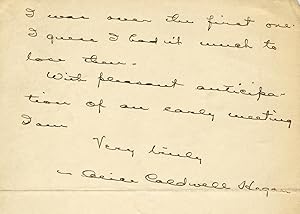 I was over the first one.
I guess I had it much to
lose then.
With pleasant anticipa-
tion of an early meeting
I am
Very truly
Caldwell Hogan